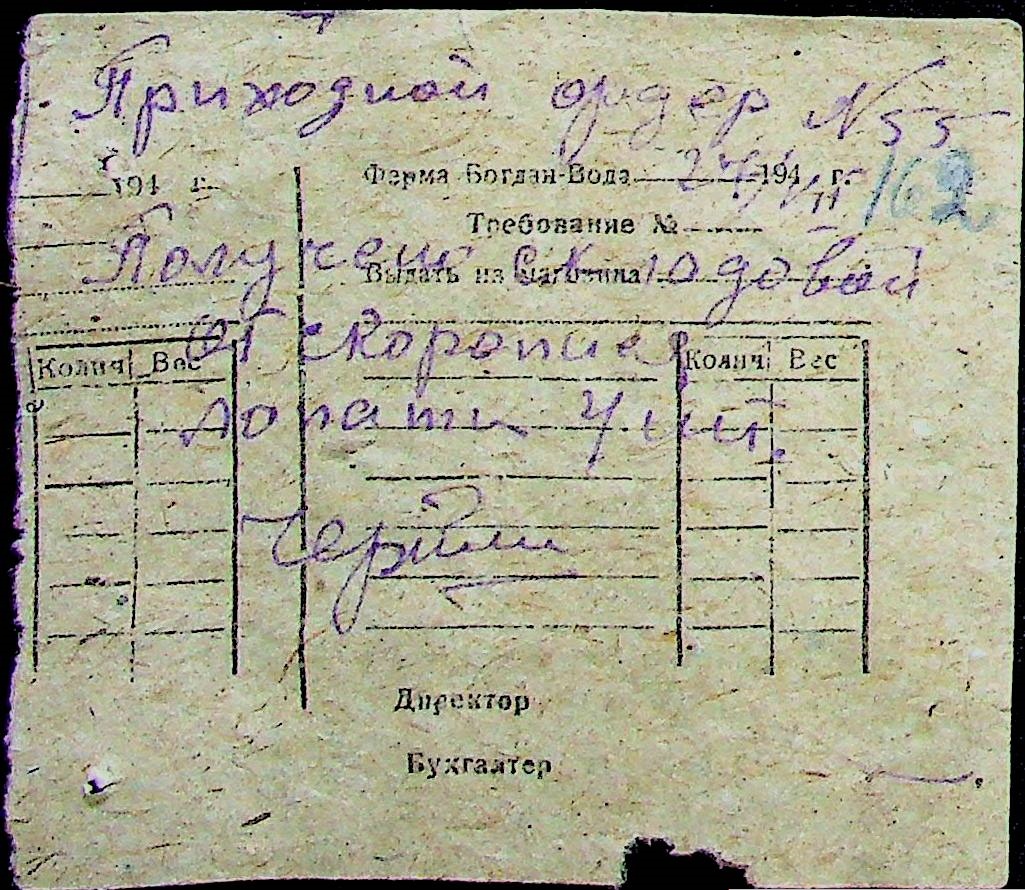 Приходной ордер № 55
194 г.
Ферма Богдан-Вода 27/VII 194 г.
162
Требование №
Получено складовой
Выдать из магазина
от скоропис
Колич Вес
Колич Вес
лопати 4 шт.
Директор
Бухгалтер